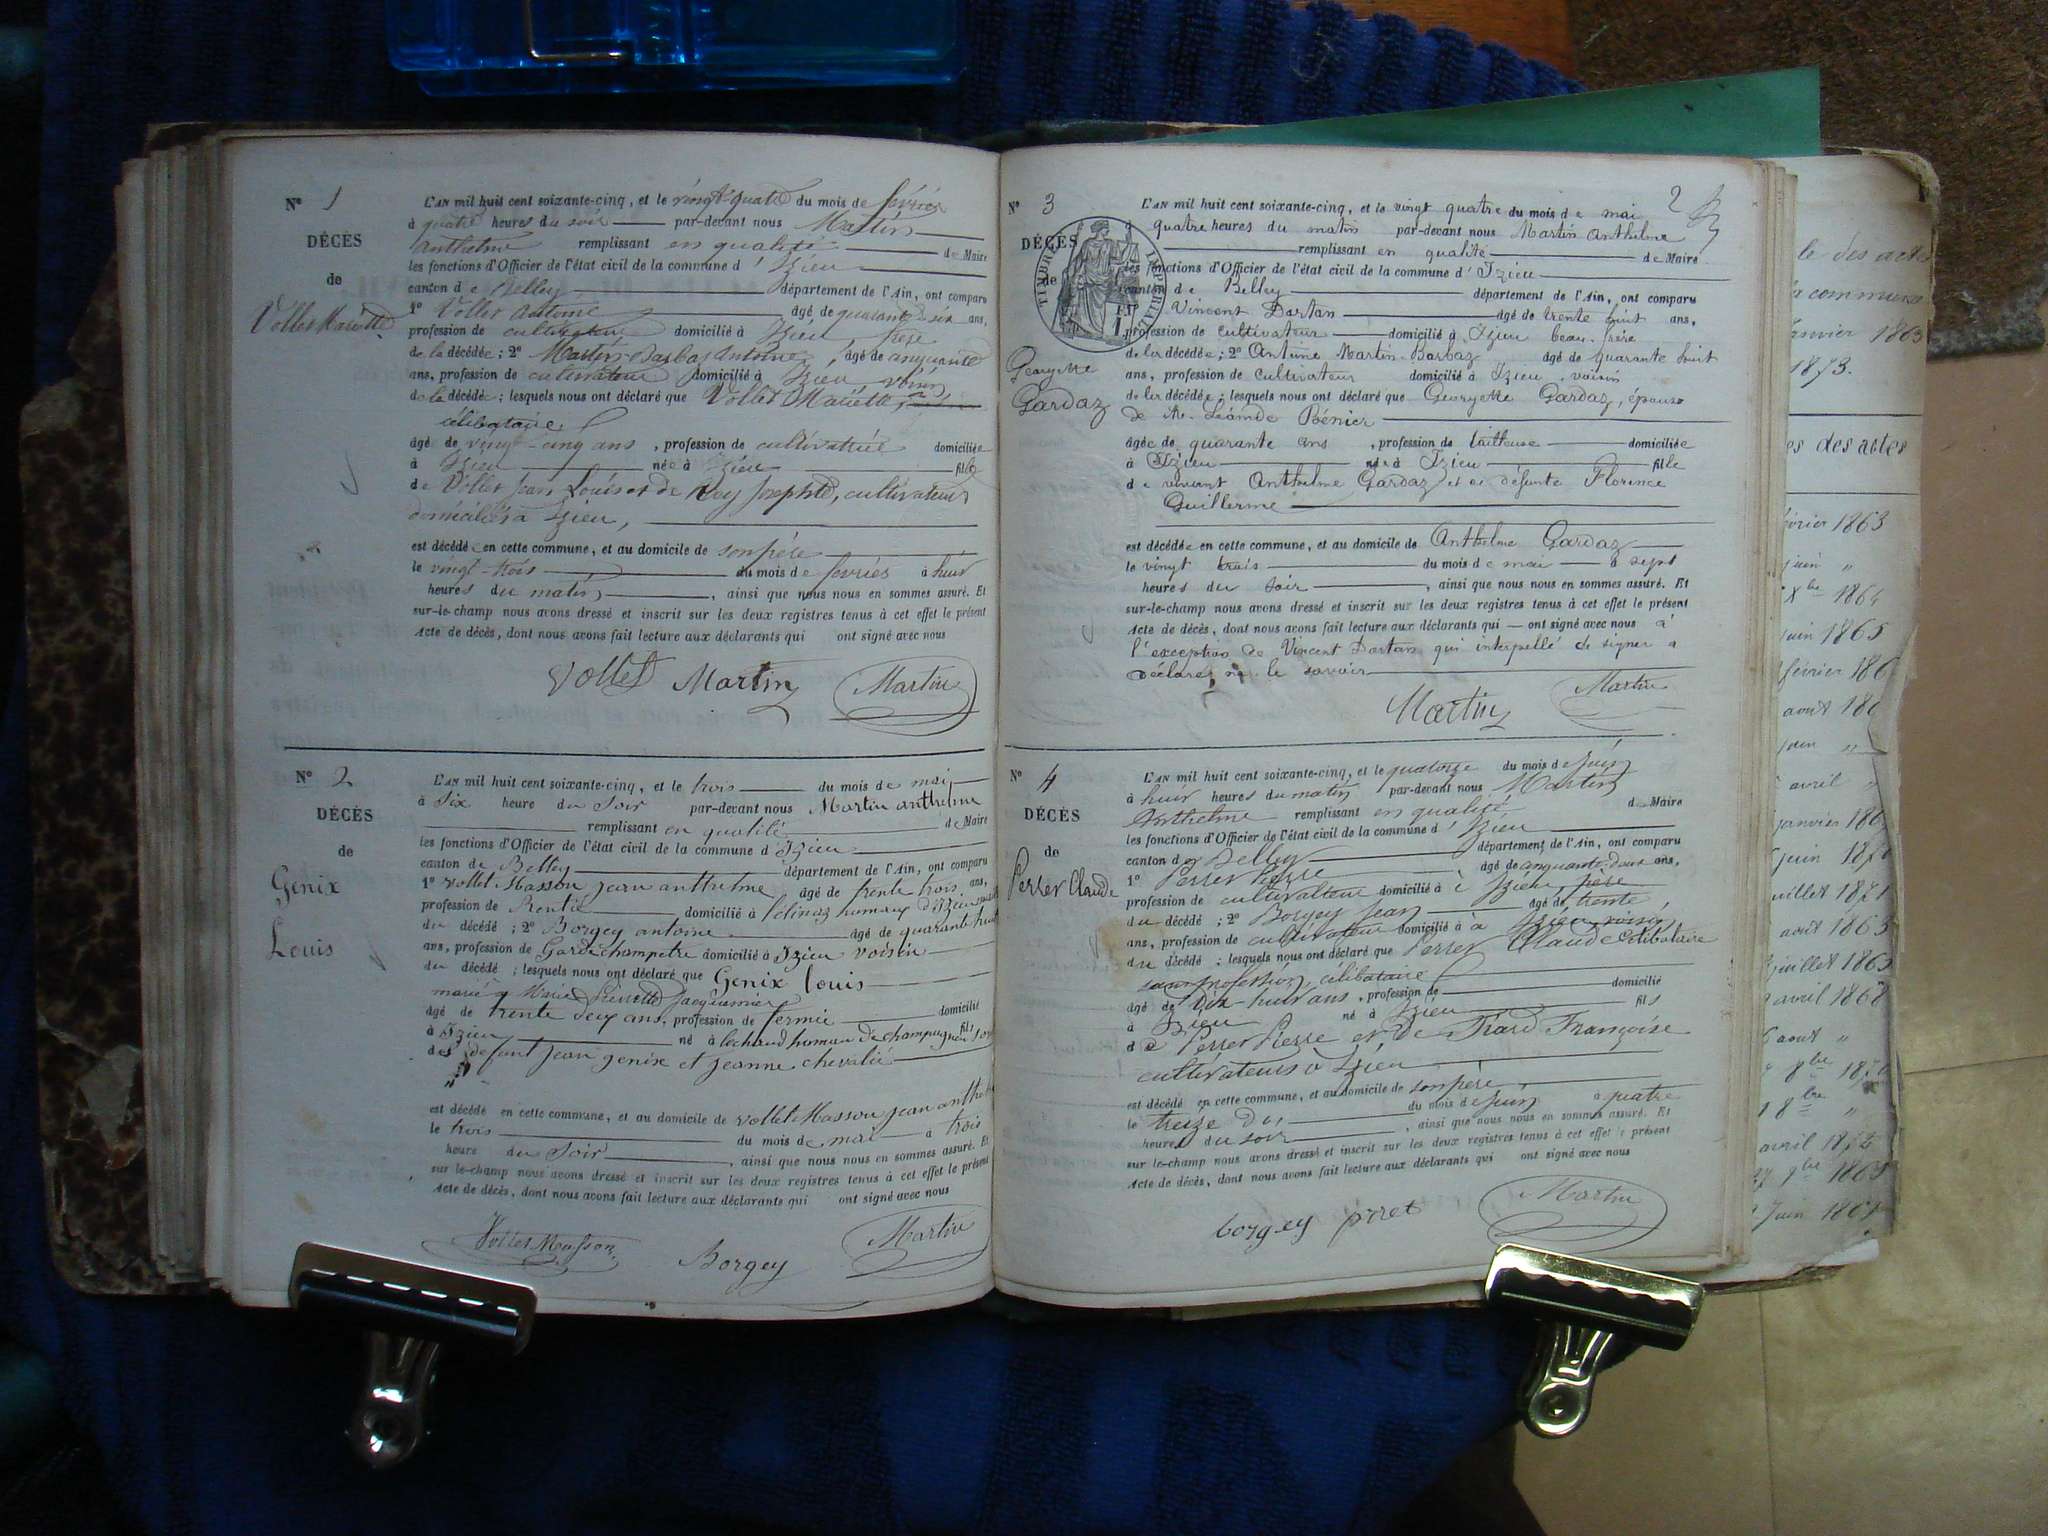 N° 1
DÉCÈS
de
Vollet Mariette
L'AN mil huit cent soixante-cinq, et le vingt-quatre du mois de février
à quatre heures du soir par-devant nous Martin
Anthelme remplissant en qualité de Maire
les fonctions d'Officier de l'état civil de la commune d'Izieu
canton de Belley département de l'Ain, ont comparu
1° Vollet Antoine âgé de quarante six ans,
profession de cultivateur domicilié à Izieu frère
de la décédée; 2° Martin-Barbaz Antoine, âgé de cinquante
ans, profession de cultivateur domicilié à Izieu voisin
de la décédée; lesquels nous ont déclaré que Vollet Mariette,
célibataire
âgé de vingt-cinq ans, profession de cultivatrice domiciliée
à Izieu née à Izieu fille
de Vollet Jean Louis et de Rey Josephte, cultivateurs
domiciliés à Izieu,
est décédée en cette commune, et au domicile de son père
le vingt-trois du mois de février à huit
heures du matin, ainsi que nous nous en sommes assuré. Et
sur-le-champ nous avons dressé et inscrit sur les deux registres tenus à cet effet le présent
Acte de décès, dont nous avons fait lecture aux déclarants qui ont signé avec nous
Vollet Martin Martin
N° 2
DÉCÈS
de
Genix
Louis
L'AN mil huit cent soixante-cinq, et le trois du mois de mai
à Six heure du Soir par-devant nous Martin anthelme
remplissant en qualité de Maire
les fonctions d'Officier de l'état civil de la commune d'Izieu
canton de Belley département de l'Ain, ont comparu
1° Vollet Masson jean anthelme âgé de trente trois ans,
profession de Rentié domicilié à hameau d'Izieu
du décédé; 2° Borgey antoine âgé de quarante huit
ans, profession de Gardechampetre domicilié à Izieu voisin
du décédé; lesquels nous ont déclaré que Genix Louis
marié a Marie Pierrette Jacquemier
âgé de trente deux ans, profession de fermié domicilié
à Izieu né à lechaud hamau de champagneu fils
des defunt jean genix et jeanne chevalié
est décédé en cette commune, et au domicile de Vollet Masson jean anthel
le trois du mois de mai à trois
heure du Soir, ainsi que nous nous en sommes assuré. Et
sur-le-champ nous avons dressé et inscrit sur les deux registres tenus à cet effet le présent
Acte de décès, dont nous avons fait lecture aux déclarants qui ont signé avec nous
Vollet Masson Borgey Martin
2
N° 3
DÉCÈS
de
Georgette
Gardaz
TIMBRE IMPERIAL
L'AN mil huit cent soixante-cinq, et le vingt quatre du mois de mai
à quatre heures du matin par-devant nous Martin Anthelme
remplissant en qualité de Maire
les fonctions d'Officier de l'état civil de la commune d'Izieu
canton de Belley département de l'Ain, ont comparu
1° Vincent Dartan âgé de trente huit ans,
profession de cultivateur domicilié à Izieu beau-frère
de la décédée; 2° Antoine Martin-Barbaz âgé de quarante huit
ans, profession de cultivateur domicilié à Izieu voisin
de la décédée; lesquels nous ont déclaré que Georgette Gardaz, épouse
de Mr. Bénier
âgée de quarante ans, profession de tailleuse domiciliée
à Izieu née à Izieu fille
de vivant Anthelme Gardaz et de défunte Florence
Guillerme
est décédée en cette commune, et au domicile de Anthelme Gardaz
le vingt trois du mois de mai à sept
heures du soir, ainsi que nous nous en sommes assuré. Et
sur-le-champ nous avons dressé et inscrit sur les deux registres tenus à cet effet le présent
Acte de décès, dont nous avons fait lecture aux déclarants qui ont signé avec nous à
l'exception de Vincent Dartan qui interpellé de signer a
déclaré ne le savoir
Martin Martin
N° 4
DÉCÈS
de
Perret Claude
L'AN mil huit cent soixante-cinq, et le quatorze du mois de juin
à huit heures du matin par-devant nous Martin
Anthelme remplissant en qualité de Maire
les fonctions d'Officier de l'état civil de la commune d'Izieu
canton de Belley département de l'Ain, ont comparu
1° Perret Pierre âgé de cinquante-deux ans,
profession de cultivateur domicilié à Izieu, père
du décédé; 2° Borgey Jean âgé de trente
ans, profession de cultivateur domicilié à Izieu voisin
du décédé; lesquels nous ont déclaré que Perret Claude célibataire
sans profession, célibataire
âgé de dix-huit ans, profession de domicilié
à Izieu né à Izieu fils
de Perret Pierre et de Tiard Françoise
cultivateurs à Izieu
est décédé en cette commune, et au domicile de son père
le treize du mois de juin à quatre
heures du soir, ainsi que nous nous en sommes assuré. Et
sur-le-champ nous avons dressé et inscrit sur les deux registres tenus à cet effet le présent
Acte de décès, dont nous avons fait lecture aux déclarants qui ont signé avec nous
borgey prret Martin
le des acte
la commune
anvier 1863
1873.
es des actes
évrier 1863
juin "
Xbre 1864
juin 1865
février 186
aout 186
juin "
avril "
janvier 186
juin 187
juillet 1871
aout 1863
juillet 1865
avril 1868
aout "
8bre 1870
18bre "
avril 1874
9bre 1865
Juin 1867